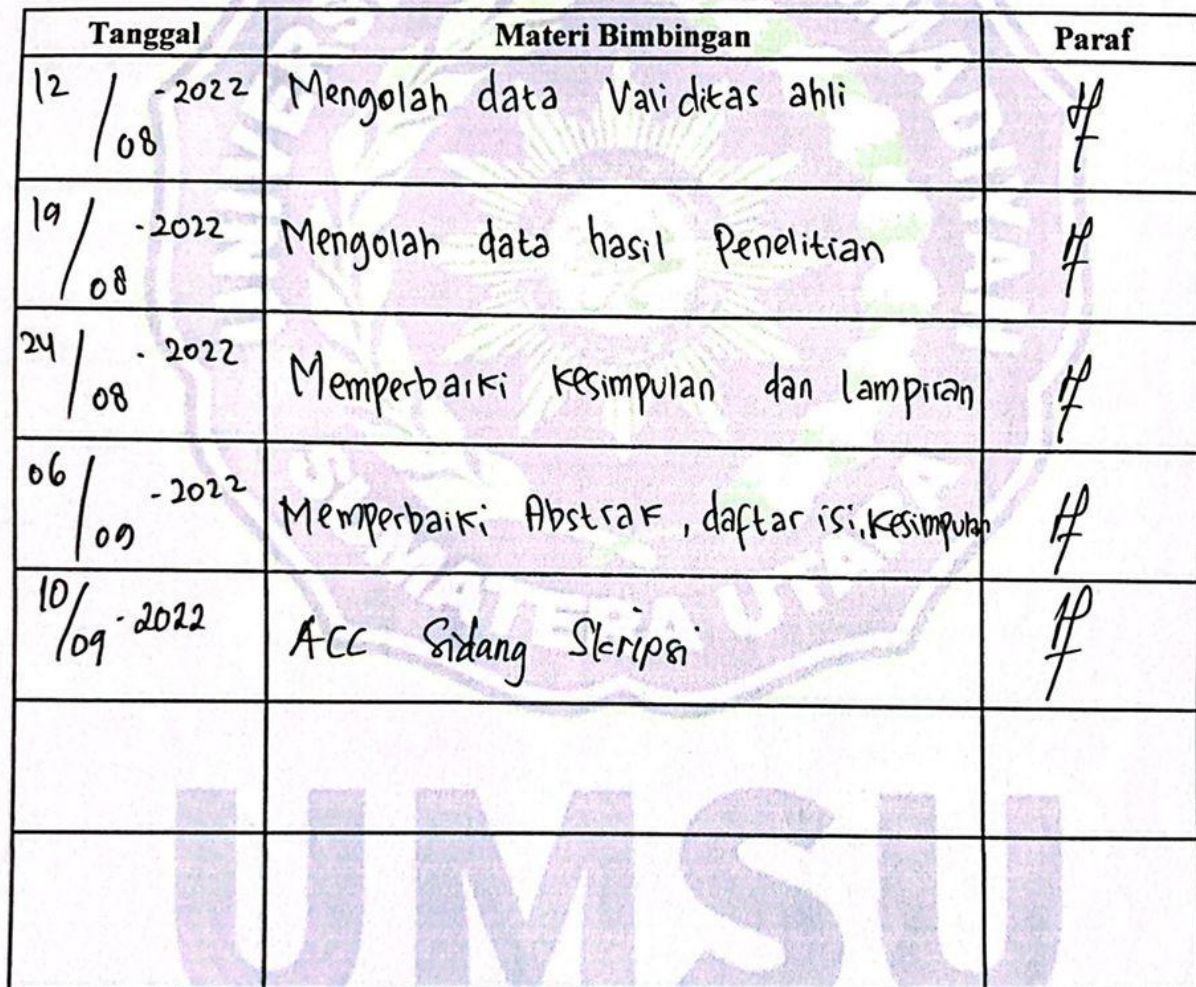 Tanggal Materi Bimbingan Paraf
12/08-2022 Mengolah data Validitas ahli
19/08-2022 Mengolah data hasil Penelitian
24/08-2022 Memperbaiki kesimpulan dan lampiran
06/09-2022 Memperbaiki Abstrak, daftar isi, kesimpulan
10/09-2022 ACC Sidang Skripsi
SUMATERA UTARA
UMSU